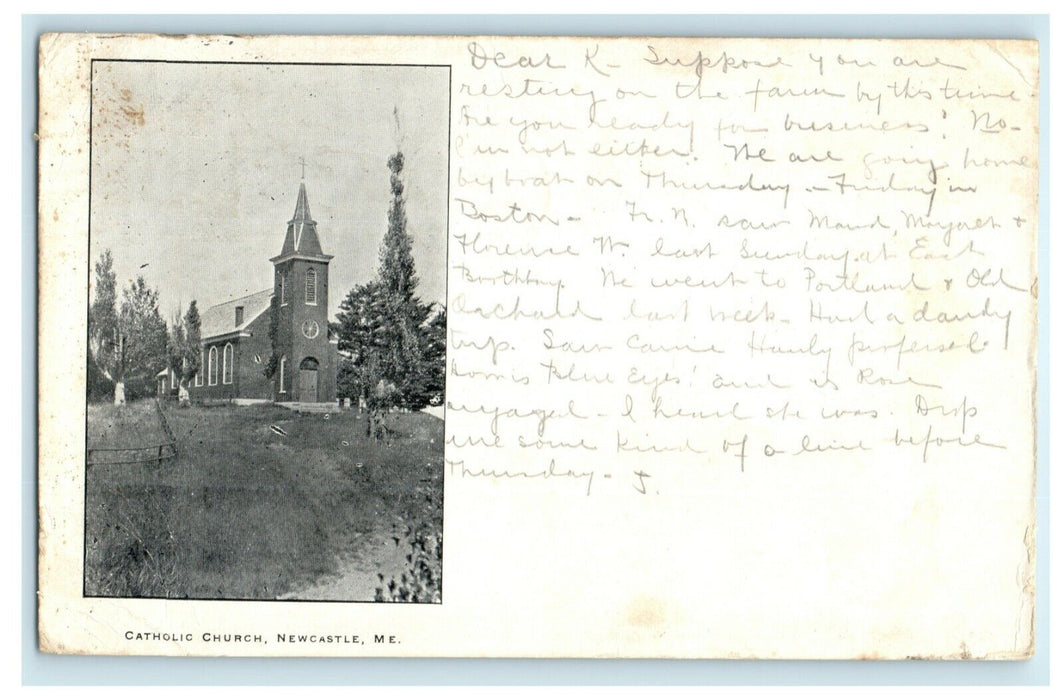 Dear K - Suppose you are
resting on the farm by this time
Are you ready for business? No -
I'm not either. We are going home
by boat on Thursday - Friday in
Boston - Fr. N. saw Maud, Margaret &
Florence W. last Sunday at East
Boothbay. We went to Portland & Old
Orchard last week - Had a dandy
trip. Saw Carrie Hanly
Blue Eyes! and is Rose
engaged - I heard she was. Drop
me some kind of a line before
Thursday - J.
CATHOLIC CHURCH, NEWCASTLE, ME.